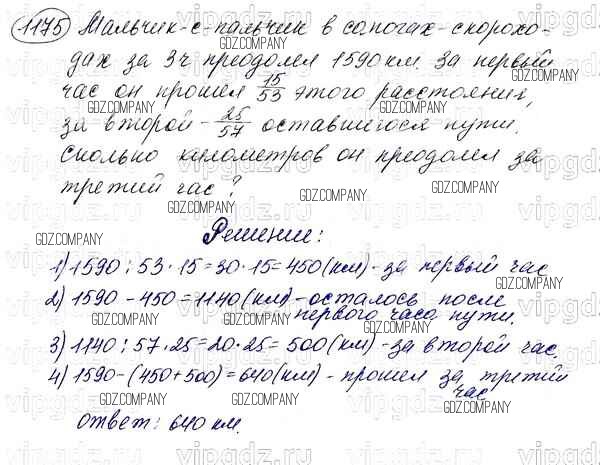 1175 Мальчик-с-пальчик в сапогах-скорохо-
дах за 3ч преодолел 1590 км. За первый
час он прошел 15/53 этого расстояния,
за второй - 25/57 оставшегося пути.
Сколько километров он преодолел за
третий час?
Решение:
1) 1590 : 53 · 15 = 30 · 15 = 450 (км) - за первый час
2) 1590 - 450 = 1140 (км) - осталось после
первого часа пути.
3) 1140 : 57 · 25 = 20 · 25 = 500 (км) - за второй час.
4) 1590 - (450 + 500) = 640 (км) - прошел за третий
час
Ответ: 640 км.